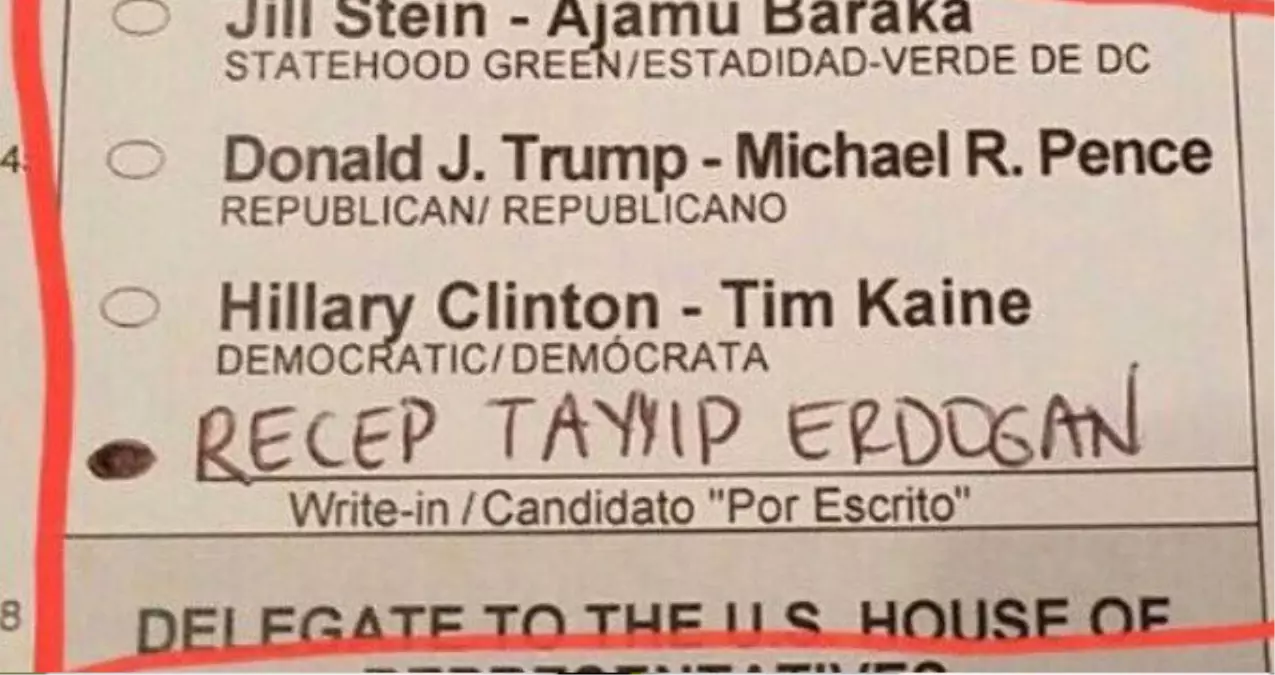 Jill Stein - Ajamu Baraka
STATEHOOD GREEN/ESTADIDAD-VERDE DE DC
4.
Donald J. Trump - Michael R. Pence
REPUBLICAN/ REPUBLICANO
Hillary Clinton - Tim Kaine
DEMOCRATIC/DEMÓCRATA
RECEP TAYYIP ERDOGAN
Write-in / Candidato "Por Escrito"
8
DELEGATE TO THE U.S. HOUSE OF
REPRESENTATIVES